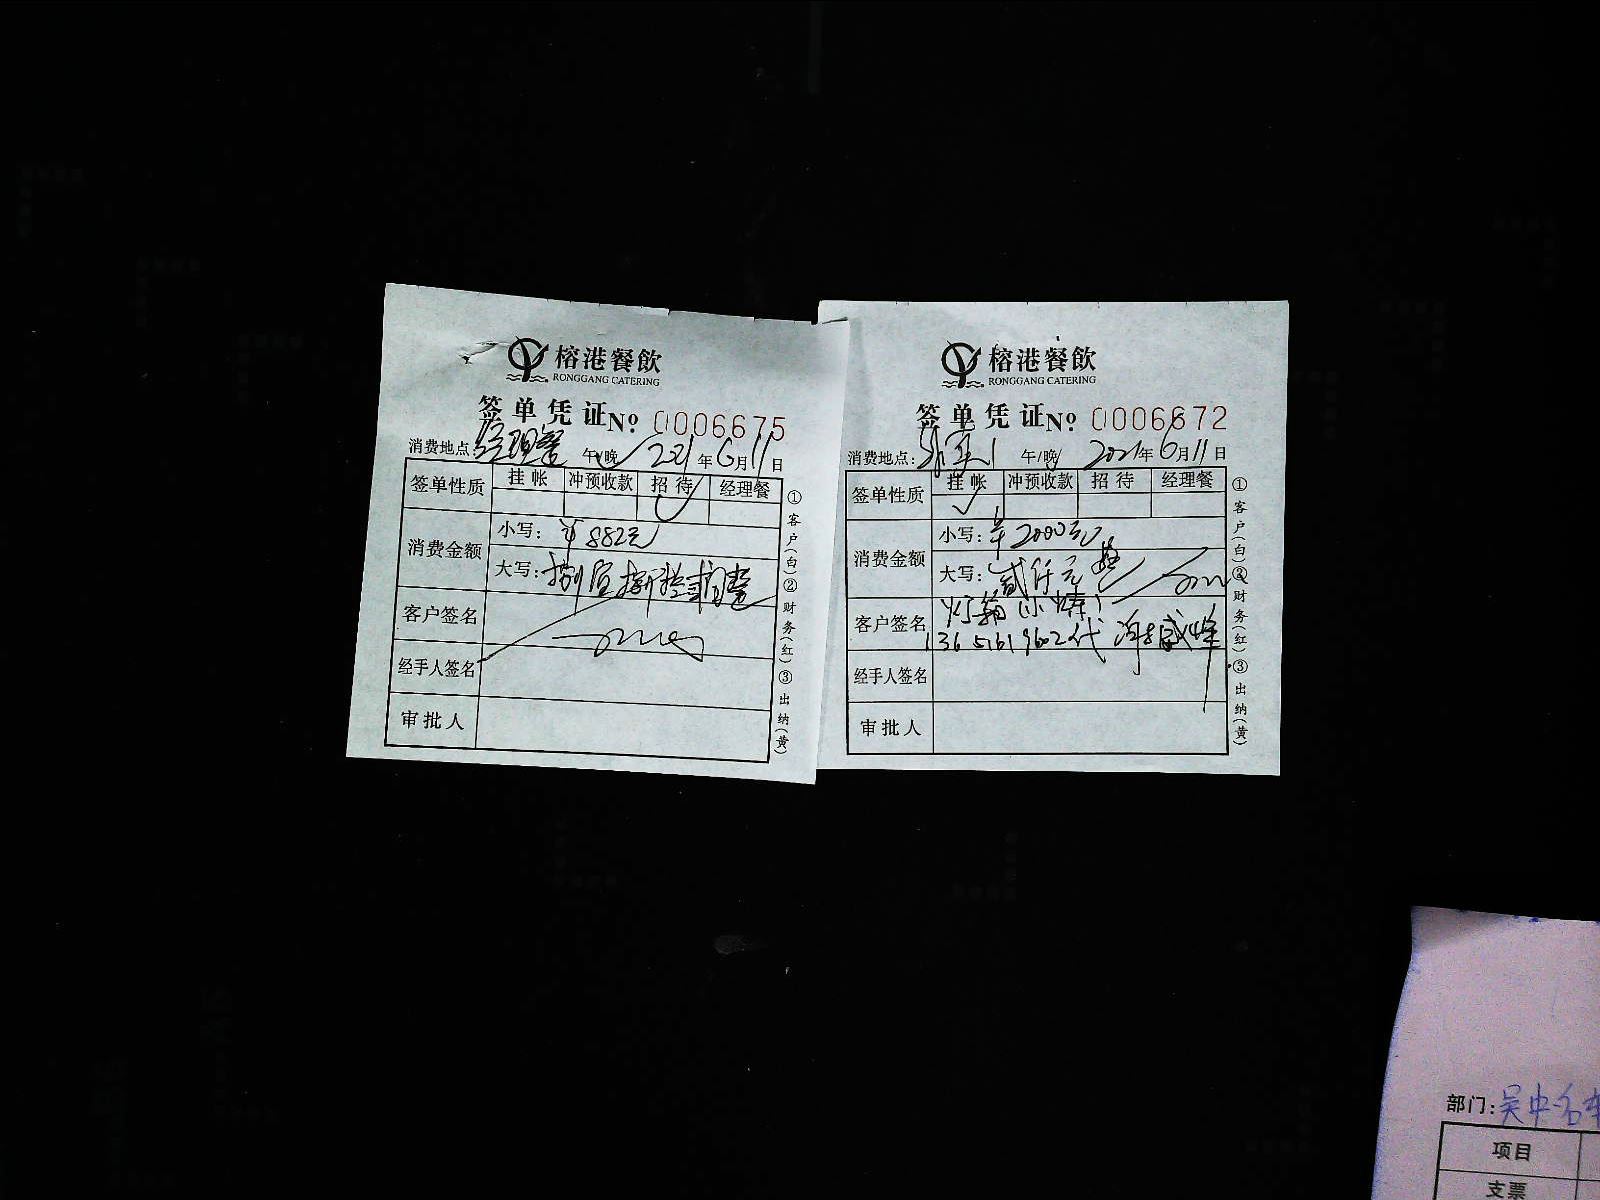 榕港餐飲
RONGGANG CATERING
签单凭证№ 0006675
消费地点: 经理餐 午/晚 2021年6月11日
签单性质 挂帐 冲预收款 招待 经理餐
消费金额 小写: ¥882元
大写: 捌佰捌拾贰元整
客户签名
经手人签名
审批人
①客户(白)②财务(红)③出纳(黄)
榕港餐飲
RONGGANG CATERING
签单凭证№ 0006672
消费地点: 午/晚 2021年6月11日
签单性质 挂帐 冲预收款 招待 经理餐
消费金额 小写: 2000元
大写: 贰仟元整
客户签名 13651619602代
经手人签名
审批人
①客户(白)②财务(红)③出纳(黄)
部门: 吴中名车
项目
支票